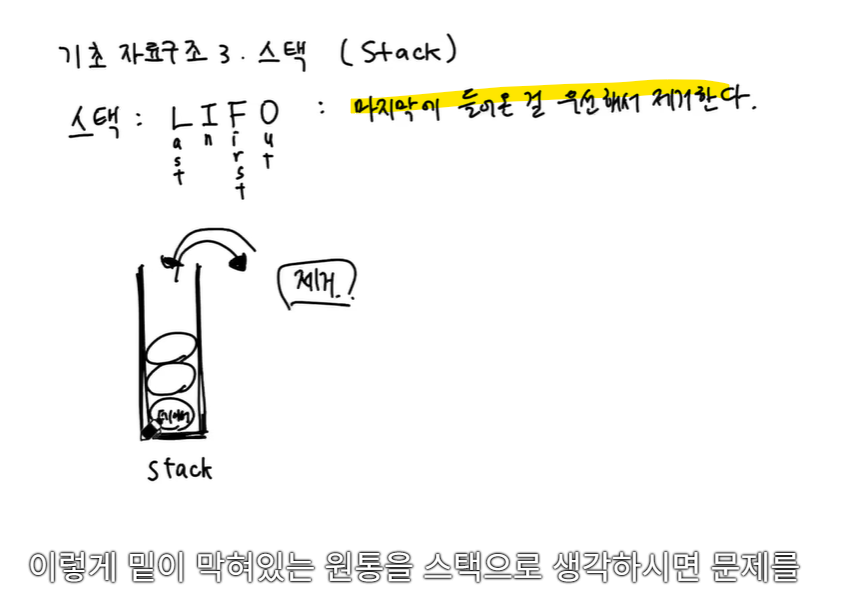 기초 자료구조 3. 스택 (Stack)
스택 : LIFO : 마지막에 들어온 걸 우선해서 제거한다.
Last In First Out
제거.!
데이터
Stack
이렇게 밑이 막혀있는 원통을 스택으로 생각하시면 문제를